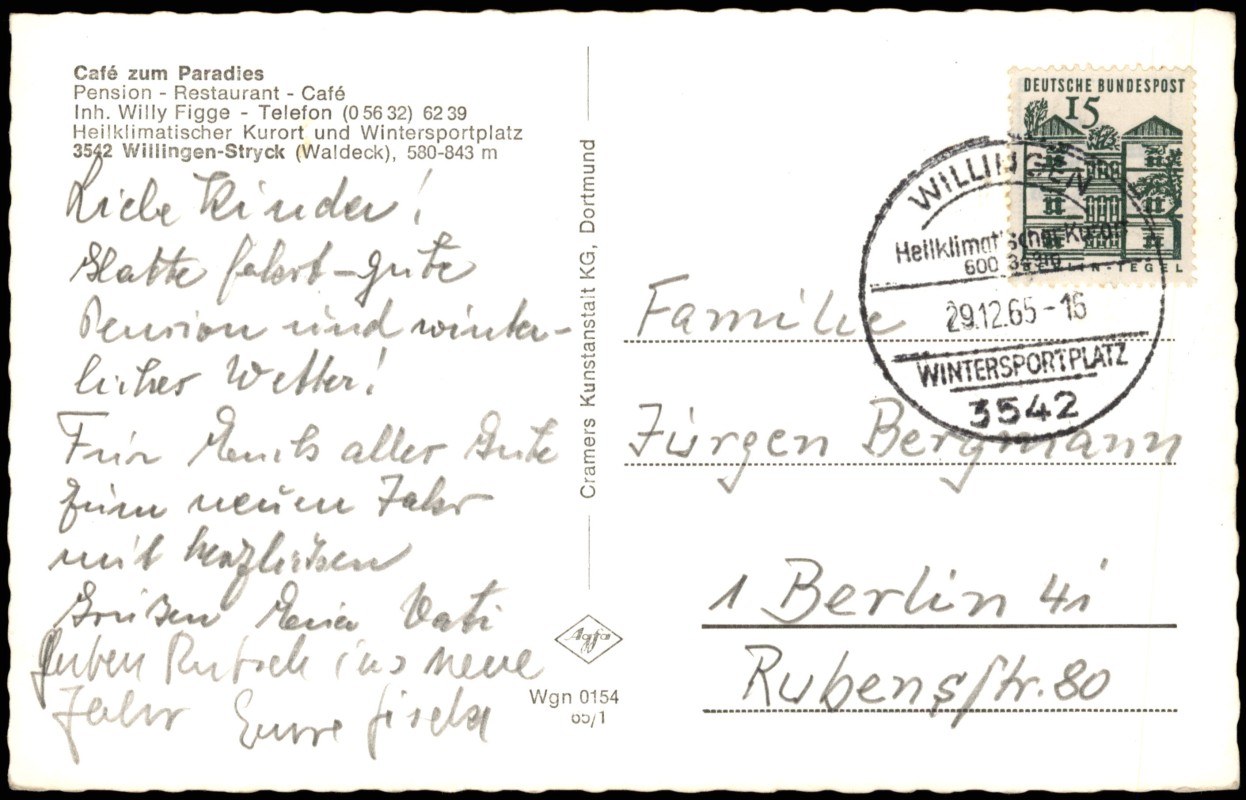 Café zum Paradies
Pension - Restaurant - Café
Inh. Willy Figge - Telefon (0 56 32) 62 39
Heilklimatischer Kurort und Wintersportplatz
3542 Willingen-Stryck (Waldeck), 580-843 m
Liebe Kinder!
Glatte Fahrt – gute
Pension und winter-
liches Wetter!
Für Euch alles Gute
zum neuen Jahr
mit herzlichen
Grüßen Euer Vati
Guten Rutsch ins neue
Jahr Eure Gisela
Cramers Kunstanstalt KG, Dortmund
Agfa
Wgn 0154
65/1
DEUTSCHE BUNDESPOST
15
BERLIN-TEGEL
WILLINGEN
Heilklimatischer Kurort
600
29.12.65-16
WINTERSPORTPLATZ
3542
Familie
Jürgen Bergmann
1 Berlin 41
Rubensstr. 80